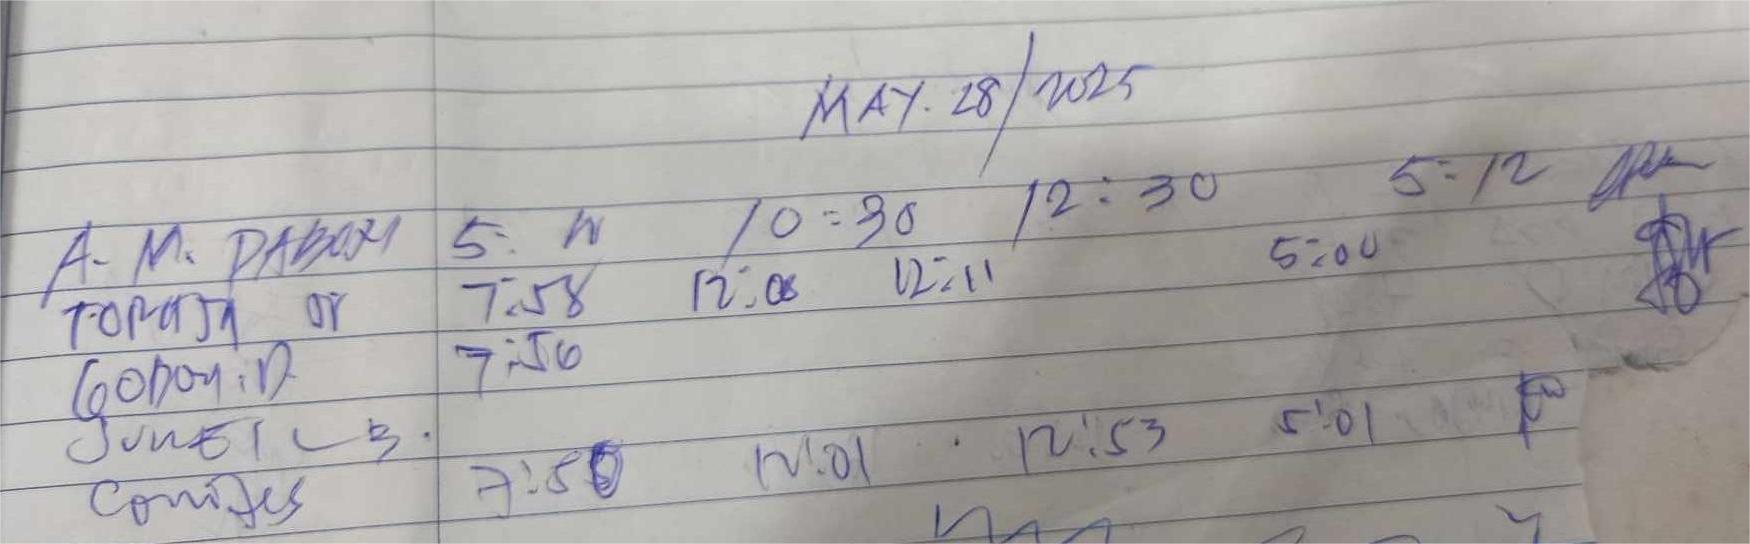 MAY. 28/2025
A. M. DABON 5: 10:30 12:30 5:12
7:58 12:08 12:11 5:00
GODOY.D 7:56
JUNEI L B.
7:50 12:01 12:53 5:01